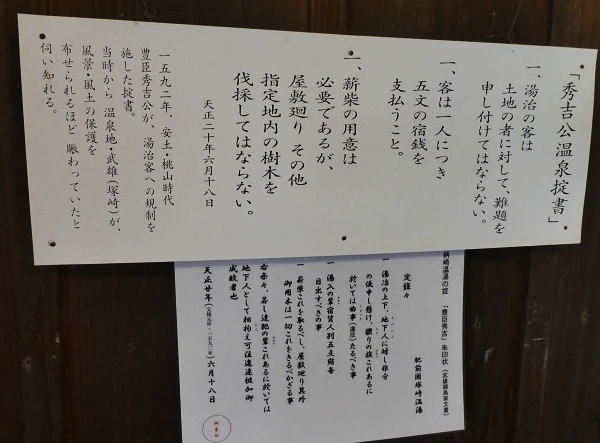 「秀吉公温泉掟書」
一、湯治の客は
土地の者に対して、難題を
申し付けてはならない。
一、客は一人につき
五文の宿銭を
支払うこと。
一、薪柴の用意は
必要であるが、
屋敷廻り その他
指定地内の樹木を
伐採してはならない。
天正二十年六月十八日
一五九二年、安土・桃山時代
豊臣秀吉公が、湯治客への規制を
施した掟書。
当時から 温泉地・武雄(塚崎)が、
風景・風土の保護を
布せられるほど 賑わっていたと
伺い知れる。
柄崎温湯の掟 「豊臣秀吉」朱印状 (武雄鍋島家文書)
定條々 肥前国塚崎温湯
一 湯治の上下、地下人に対し非分
の儀申し懸け、猥りの族これあるに
於いては曲事(違法)たるべき事
一 湯入の輩宿賃人別五文宛毎
日出すべきの事
一 薪柴これを取るべし、屋敷廻り其外
御用木は一切これをきるべからざる事
右条々、若し違犯の輩これあるに於いては
地下人として相拘え可注進速被加御
成敗者也
天正廿年(文禄元年・一五九二年)六月十八日